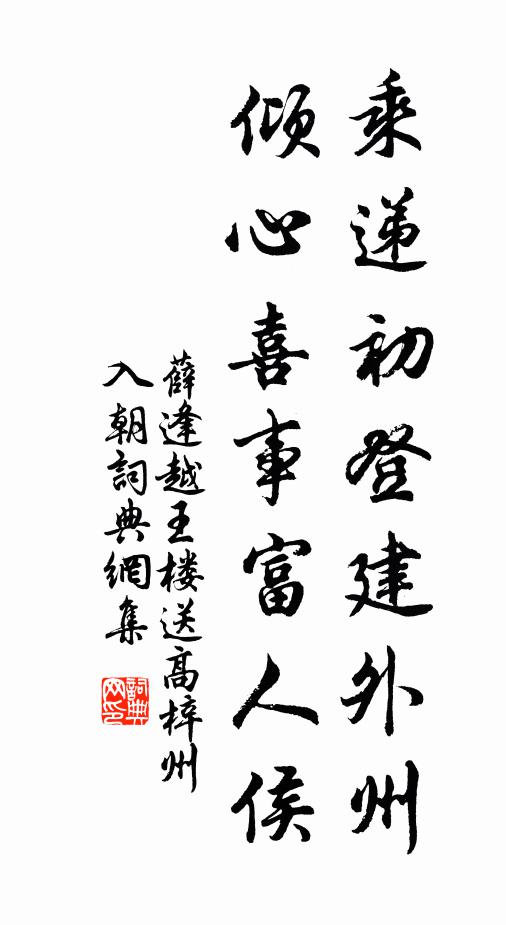 乘递初登建外州
倾心喜事富人侯
薛逢越王楼送高梓州
入朝詞典網集
詞典网印